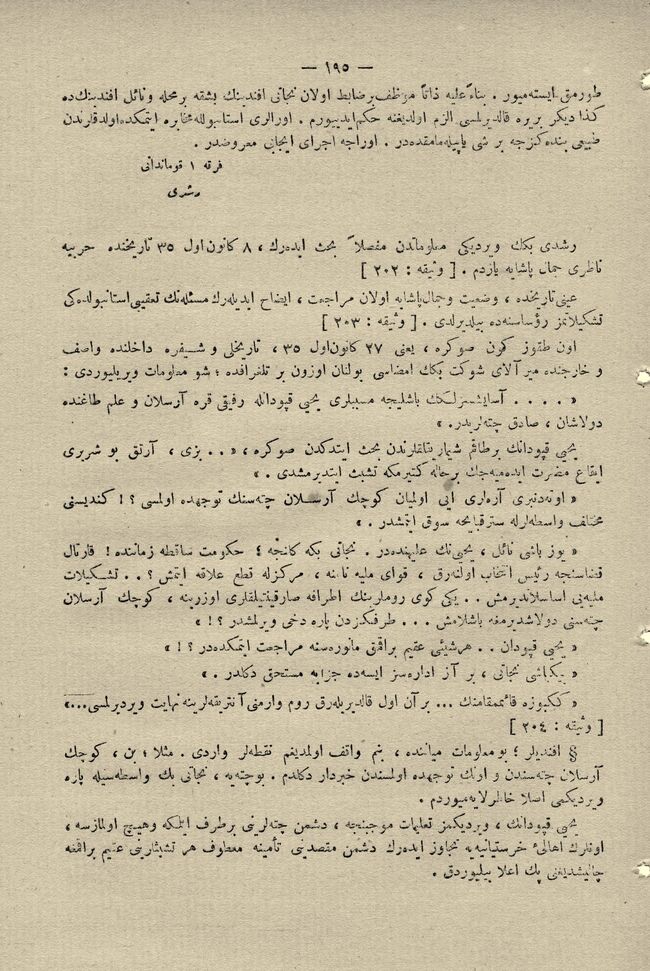 — ١٩٥ —
طورمق ايسته‌ميور . بناءً عليه ذاتاً موظف بر ضابط اولان نجاتى افندينك بشقه بر محله و نائل افندينك ده
كذا ديكر بر يره قالديرلمسى الزم اولديغنه حكم ايدييورم . اورالرى استانبولله مخابره ايتمكده اولدقلرندن
طبيعى بنده كزجه بر شى ياپيله‌مامقده‌در . اوراجه اجراى ايجابى معروضدر .
فرقه ١ قوماندانى
رشدى
رشدى بكك ويرديكى معلوماتدن مفصلاً بحث ايده‌رك ، ٨ كانون اول ٣٥ تاريخنده حربيه
ناظرى جمال پاشايه يازدم . [ وثيقه : ٢٠٢ ]
عينى تاريخده ، وضعيت و جمال پاشايه اولان مراجعت ، ايضاح ايديله‌رك مسئله‌نك تعقيبى استانبولده‌كى
تشكيلاتمز رؤساسنه‌ده بيلديرلدى . [ وثيقه : ٢٠٣ ]
اون طقوز كون صوكره ، يعنى ٢٧ كانون اول ٣٥ ، تاريخلى و شيفره داخلنده واصف
و خارجنده ميرآلاى شوكت بكك امضاسى بولنان اوزون بر تلغرافده ؛ شو معلومات ويريليوردى :
« . . . . . آسايشسزلكك باشليجه مسببلرى يحيى قپودانله رفيقى قره آرسلان و علم طاغنده
دولاشان ، صادق چته‌لريدر . »
يحيى قپودانك برطاقم شيمار يقلقلرندن بحث ايتدكدن صوكره ، « . . بزى ، آرتق بو شريرى
ايقاع مضرت ايده‌ميه‌جك برحاله كتيرمكه تشبث ايتديرمشدى . »
« اوته‌دنبرى آره‌لرى ايى اولميان كوچك آرسلان چته‌سنك توجهده اولمسى ؟! كنديسنى
مختلف واسطه‌لرله سترقبايحه سوق ايتمشدر . »
« يوز باشى نائل ، يحيى‌نك عليهنده‌در . نجاتى بكه كلنجه ؛ حكومت ساقطه زماننده ! قارتال
قضاسنجه رئيس انتخاب اولنه‌رق ، قواى مليه نامنه ، مركزله قطع علاقه ايتمش ؟ . . تشكيلات
مليه‌يى اساسلانديرمش . . يكى كوى روملرينك اطرافه صارقينتيلقلرى اوزرينه ، كوچك آرسلان
چته‌سنى دولاشديرمغه باشلامش . . . طرفكزدن پاره دخى ويرلمشدر ؟! »
« يحيى قپودان . . هرشيئى عقيم براقمق مانوره‌سنه مراجعت ايتمكده‌در ؟! »
« بيكباشى نجاتى ، بر آز اداره‌سز ايسه‌ده جزايه مستحق دكلدر . »
« ككبوزه قائممقامنك ... بر آن اول قالديريله‌رق روم وارمنى آنتريقه‌لرينه نهايت ويرديرلمسى...»
[ وثيقه : ٢٠٤ ]
§ افنديلر ؛ بو معلومات مياننده ، بنم واقف اولمديغم نقطه‌لر واردى . مثلا ؛ بن ، كوچك
آرسلان چته‌سندن و اونك توجهده اولمسندن خبردار دكلدم . بوچته‌يه ، نجاتى بك واسطه‌سيله پاره
ويرديكمى اصلا خاطرلايه‌ميوردم .
يحيى قپودانك ، ويرديكمز تعليمات موجبنجه ، دشمن چته‌لرينى برطرف ايتمكه وهيچ اولمازسه ،
اونلرك اهالئ خرستيانيه‌يه تجاوز ايده‌رك دشمن مقصدينى تأمينه معطوف هر تشبثلرينى عقيم براقمغه
چاليشديغنى پك اعلا بيليوردق .